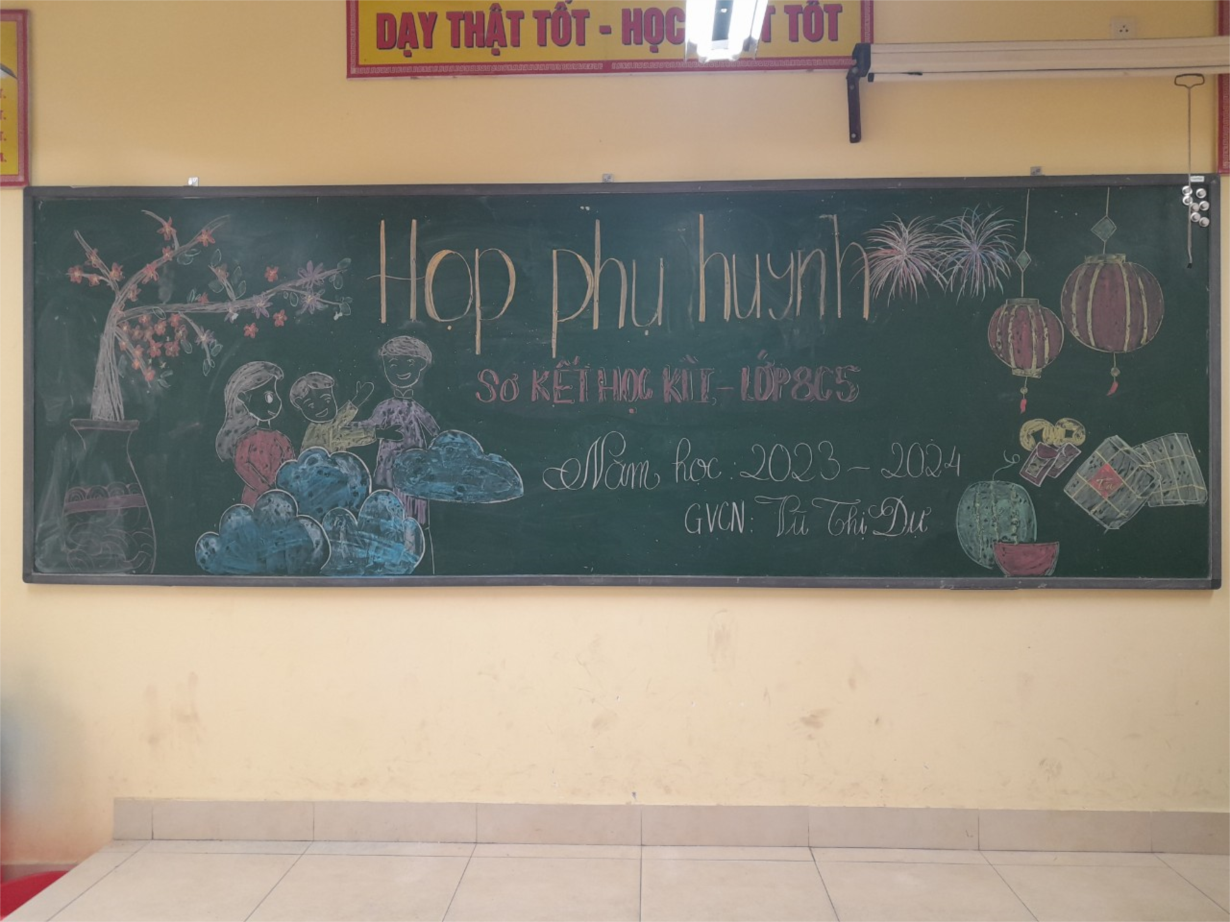 DẠY THẬT TỐT - HỌC TỐT
Họp phụ huynh
SƠ KẾT HỌC KÌ I - LỚP 8C5
Năm học: 2023 - 2024
GVCN: Vũ Thị Dự